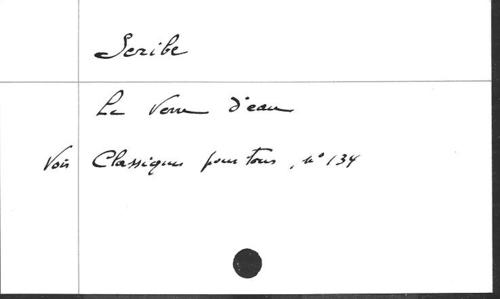 Scribe
Le Verre d'eau
Voir Classiques pour tous, n° 134